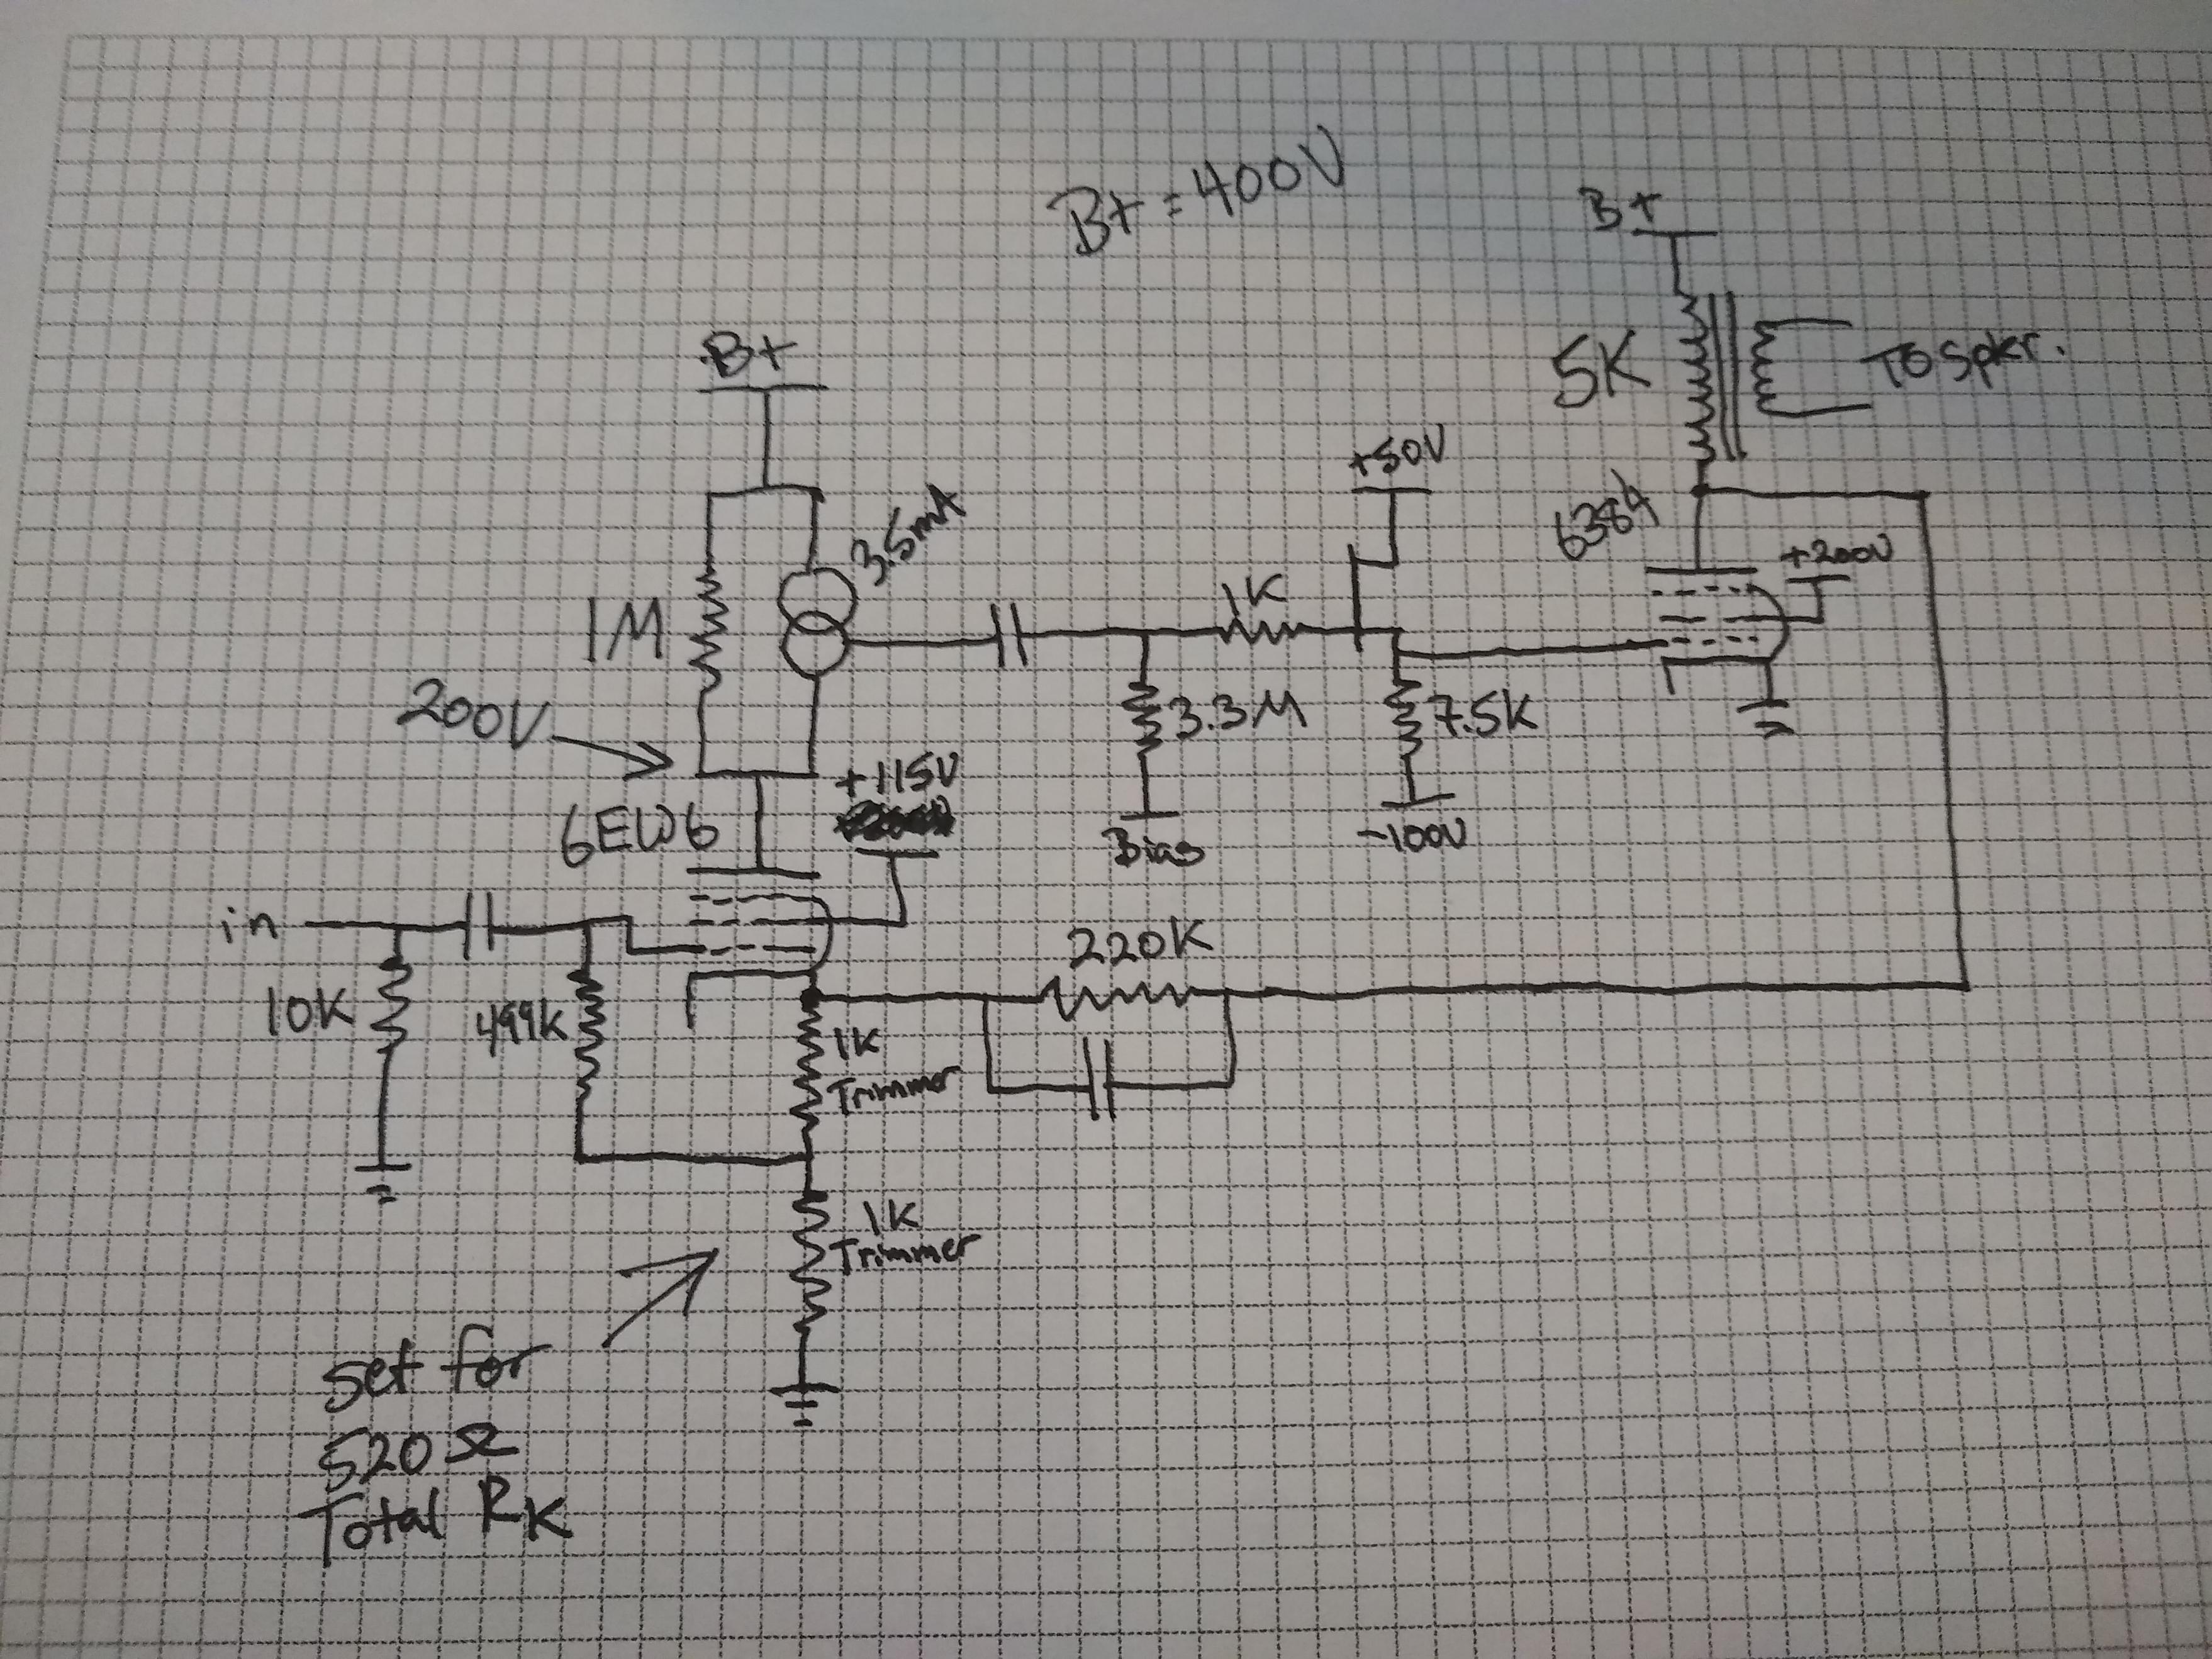 B+ = 400V
B+
5K
To Spkr.
B+
+50V
3.5mA
+200V
1K
1M
200V
3.3M
7.5K
+115V
6EW6
Bias
-100V
in
220K
10K
499K
1K
Trimmer
1K
Trimmer
set for
520Ω
Total RK